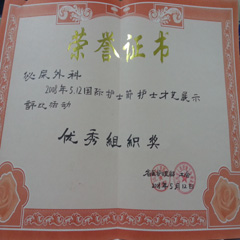 荣誉证书
泌尿外科
2008年5.12国际护士节护士才艺展示
评比活动
优秀组织奖
2008年5月12日